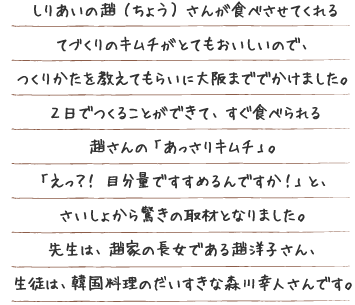 しりあいの趙（ちょう）さんが食べさせてくれる
てづくりのキムチがとてもおいしいので、
つくりかたを教えてもらいに大阪まででかけました。
２日でつくることができて、すぐ食べられる
趙さんの「あっさりキムチ」。
「えっ？！ 目分量ですすめるんですか！」と、
さいしょから驚きの取材となりました。
先生は、趙家の長女である趙洋子さん、
生徒は、韓国料理のだいすきな森川幸人さんです。